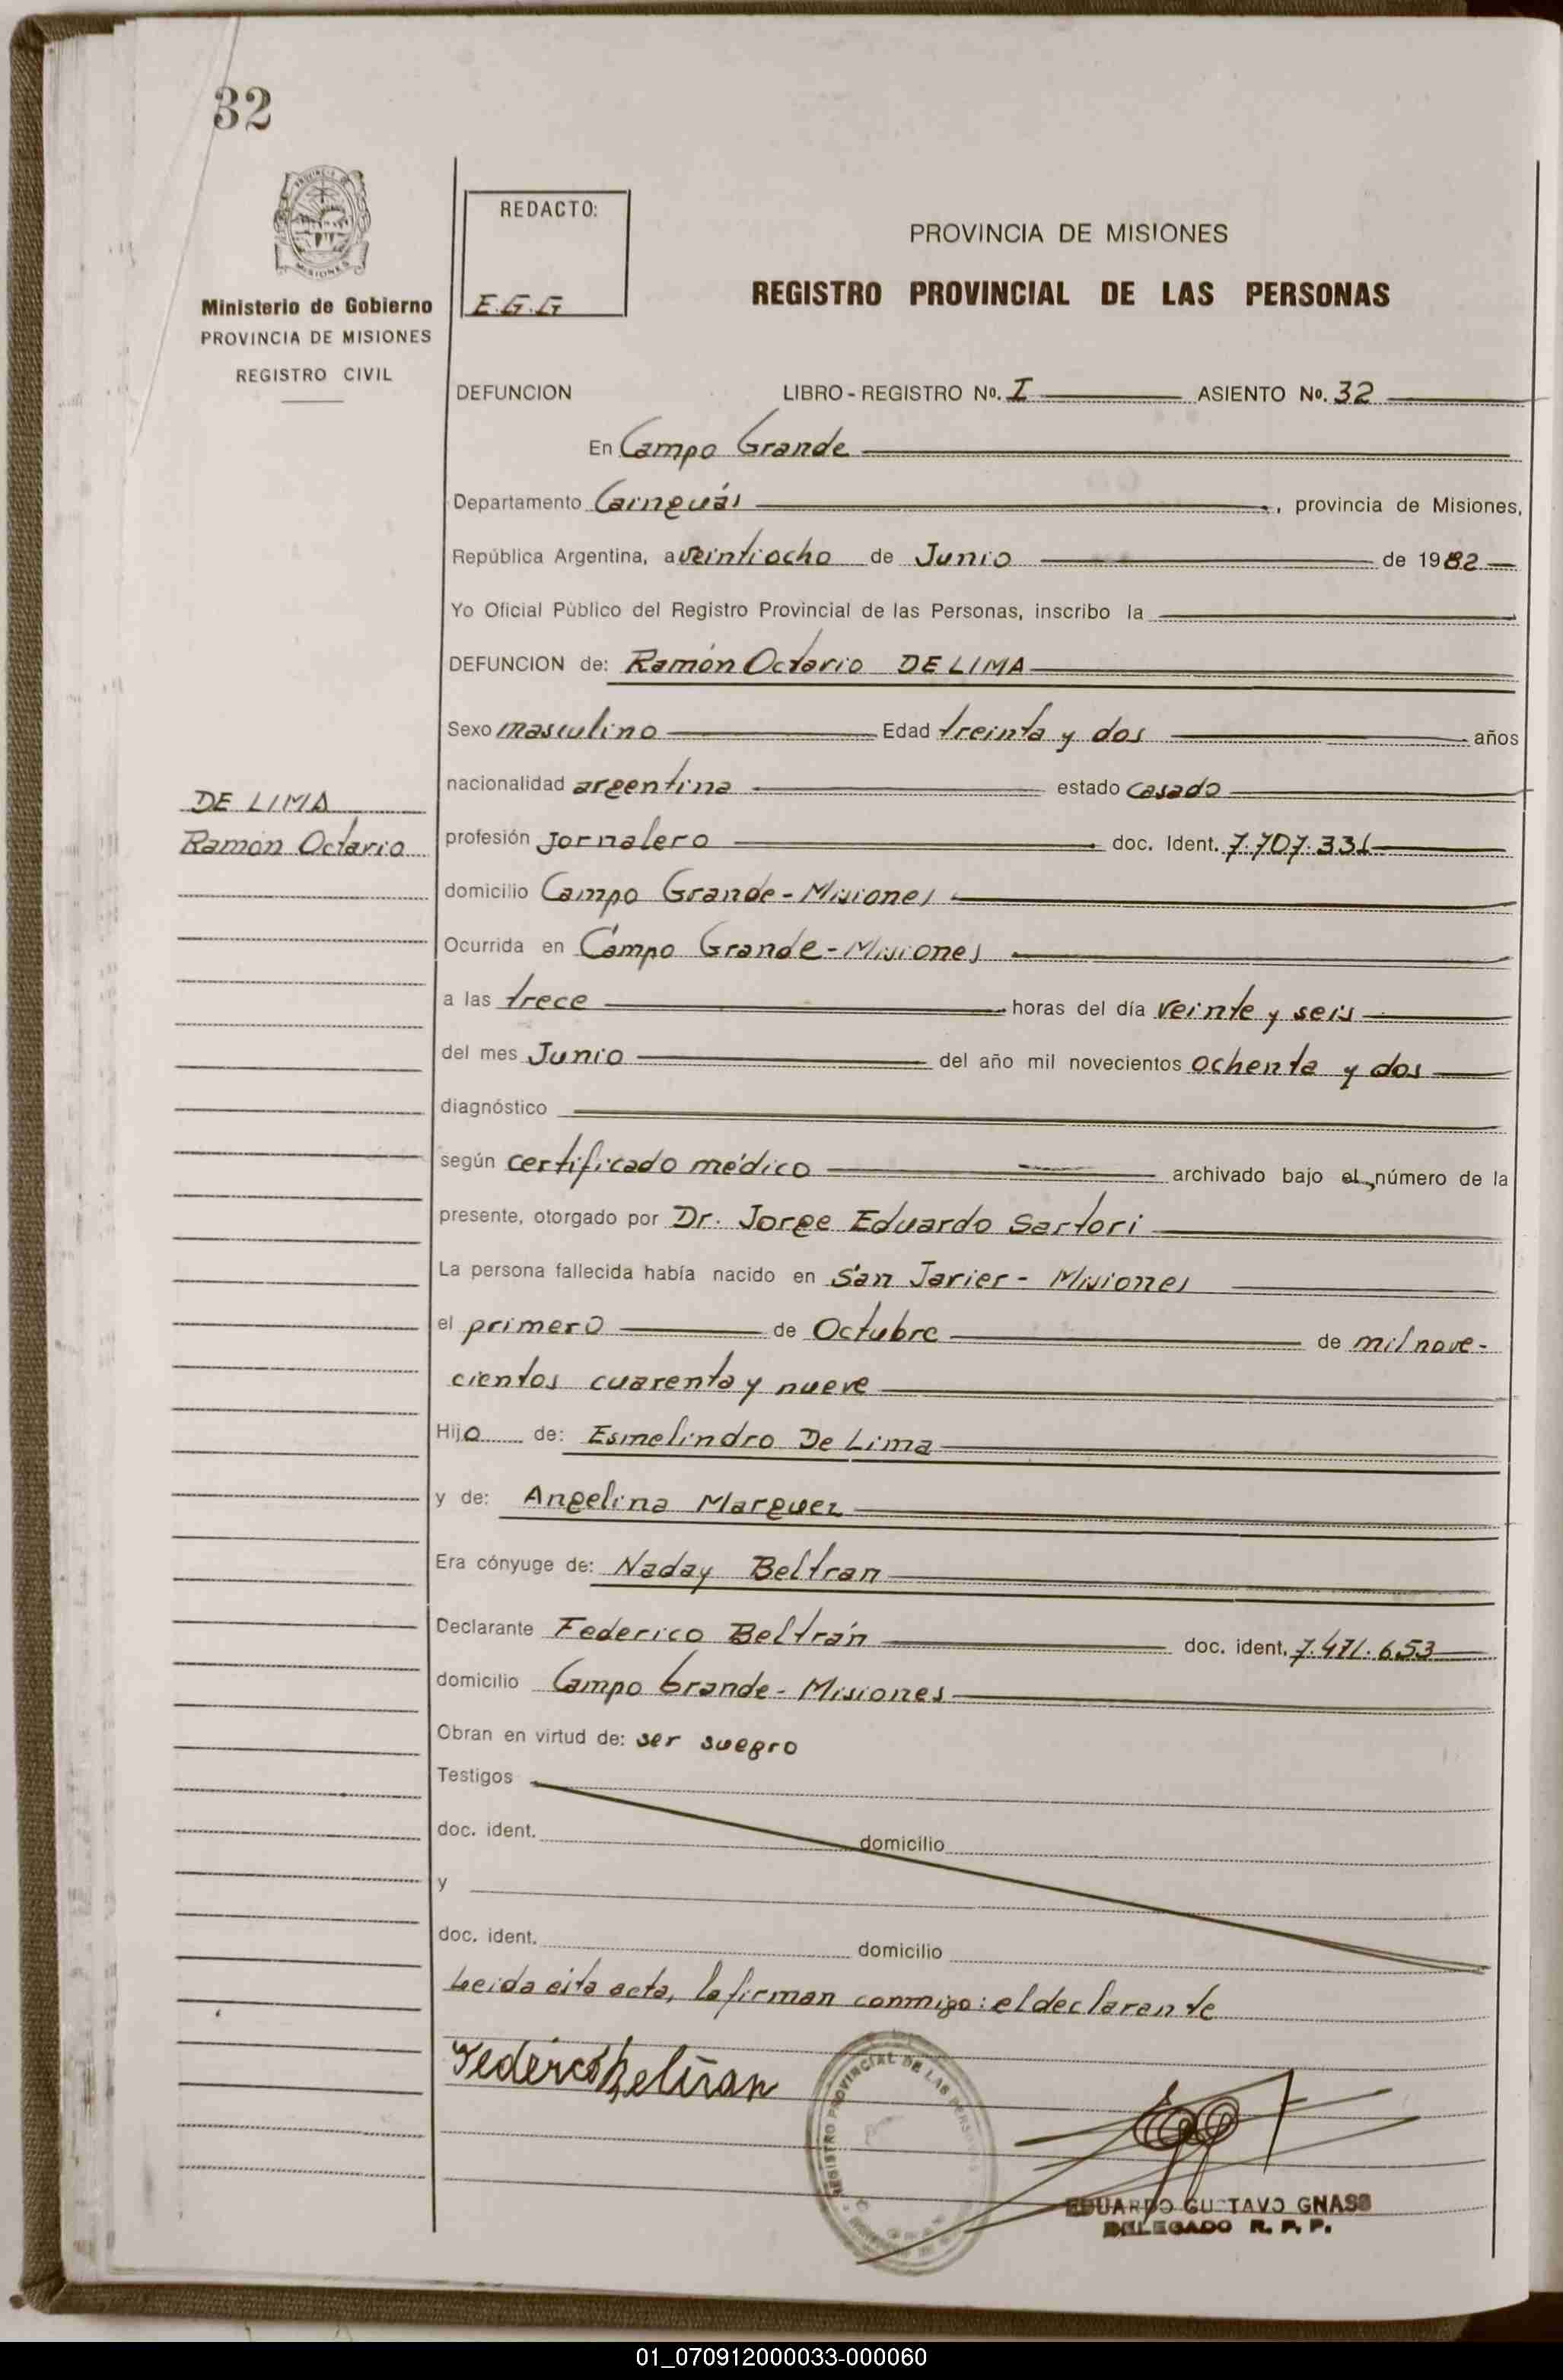 32
PROVINCIA DE
MISIONES
Ministerio de Gobierno
PROVINCIA DE MISIONES
REGISTRO CIVIL
REDACTO:
E.G.G
PROVINCIA DE MISIONES
REGISTRO PROVINCIAL DE LAS PERSONAS
DEFUNCION LIBRO - REGISTRO Nº. I ASIENTO Nº. 32
En Campo Grande
Departamento Cainguás, provincia de Misiones,
República Argentina, a veintiocho de Junio de 1982
Yo Oficial Público del Registro Provincial de las Personas, inscribo la
DEFUNCION de: Ramón Octavio DE LIMA
Sexo masculino Edad treinta y dos años
nacionalidad argentina estado casado
DE LIMA
Ramón Octavio
profesión Jornalero doc. Ident. 7.707.331
domicilio Campo Grande - Misiones
Ocurrida en Campo Grande - Misiones
a las trece horas del día veinte y seis
del mes Junio del año mil novecientos ochenta y dos
diagnóstico
según certificado médico archivado bajo el número de la
presente, otorgado por Dr. Jorge Eduardo Sartori
La persona fallecida había nacido en San Javier - Misiones
el primero de Octubre de mil nove-
cientos cuarenta y nueve
Hijo de: Esmelindro De Lima
y de: Angelina Marquez
Era cónyuge de: Naday Beltran
Declarante Federico Beltrán doc. ident. 7.471.653
domicilio Campo Grande - Misiones
Obran en virtud de: ser suegro
Testigos
doc. ident. domicilio
y
doc. ident. domicilio
Leida esta acta, la firman conmigo: el declarante
Federico Beltran
REGISTRO PROVINCIAL DE LAS PERSONAS
EDUARDO GUSTAVO GNASS
DELEGADO R. P. P.
01_070912000033-000060